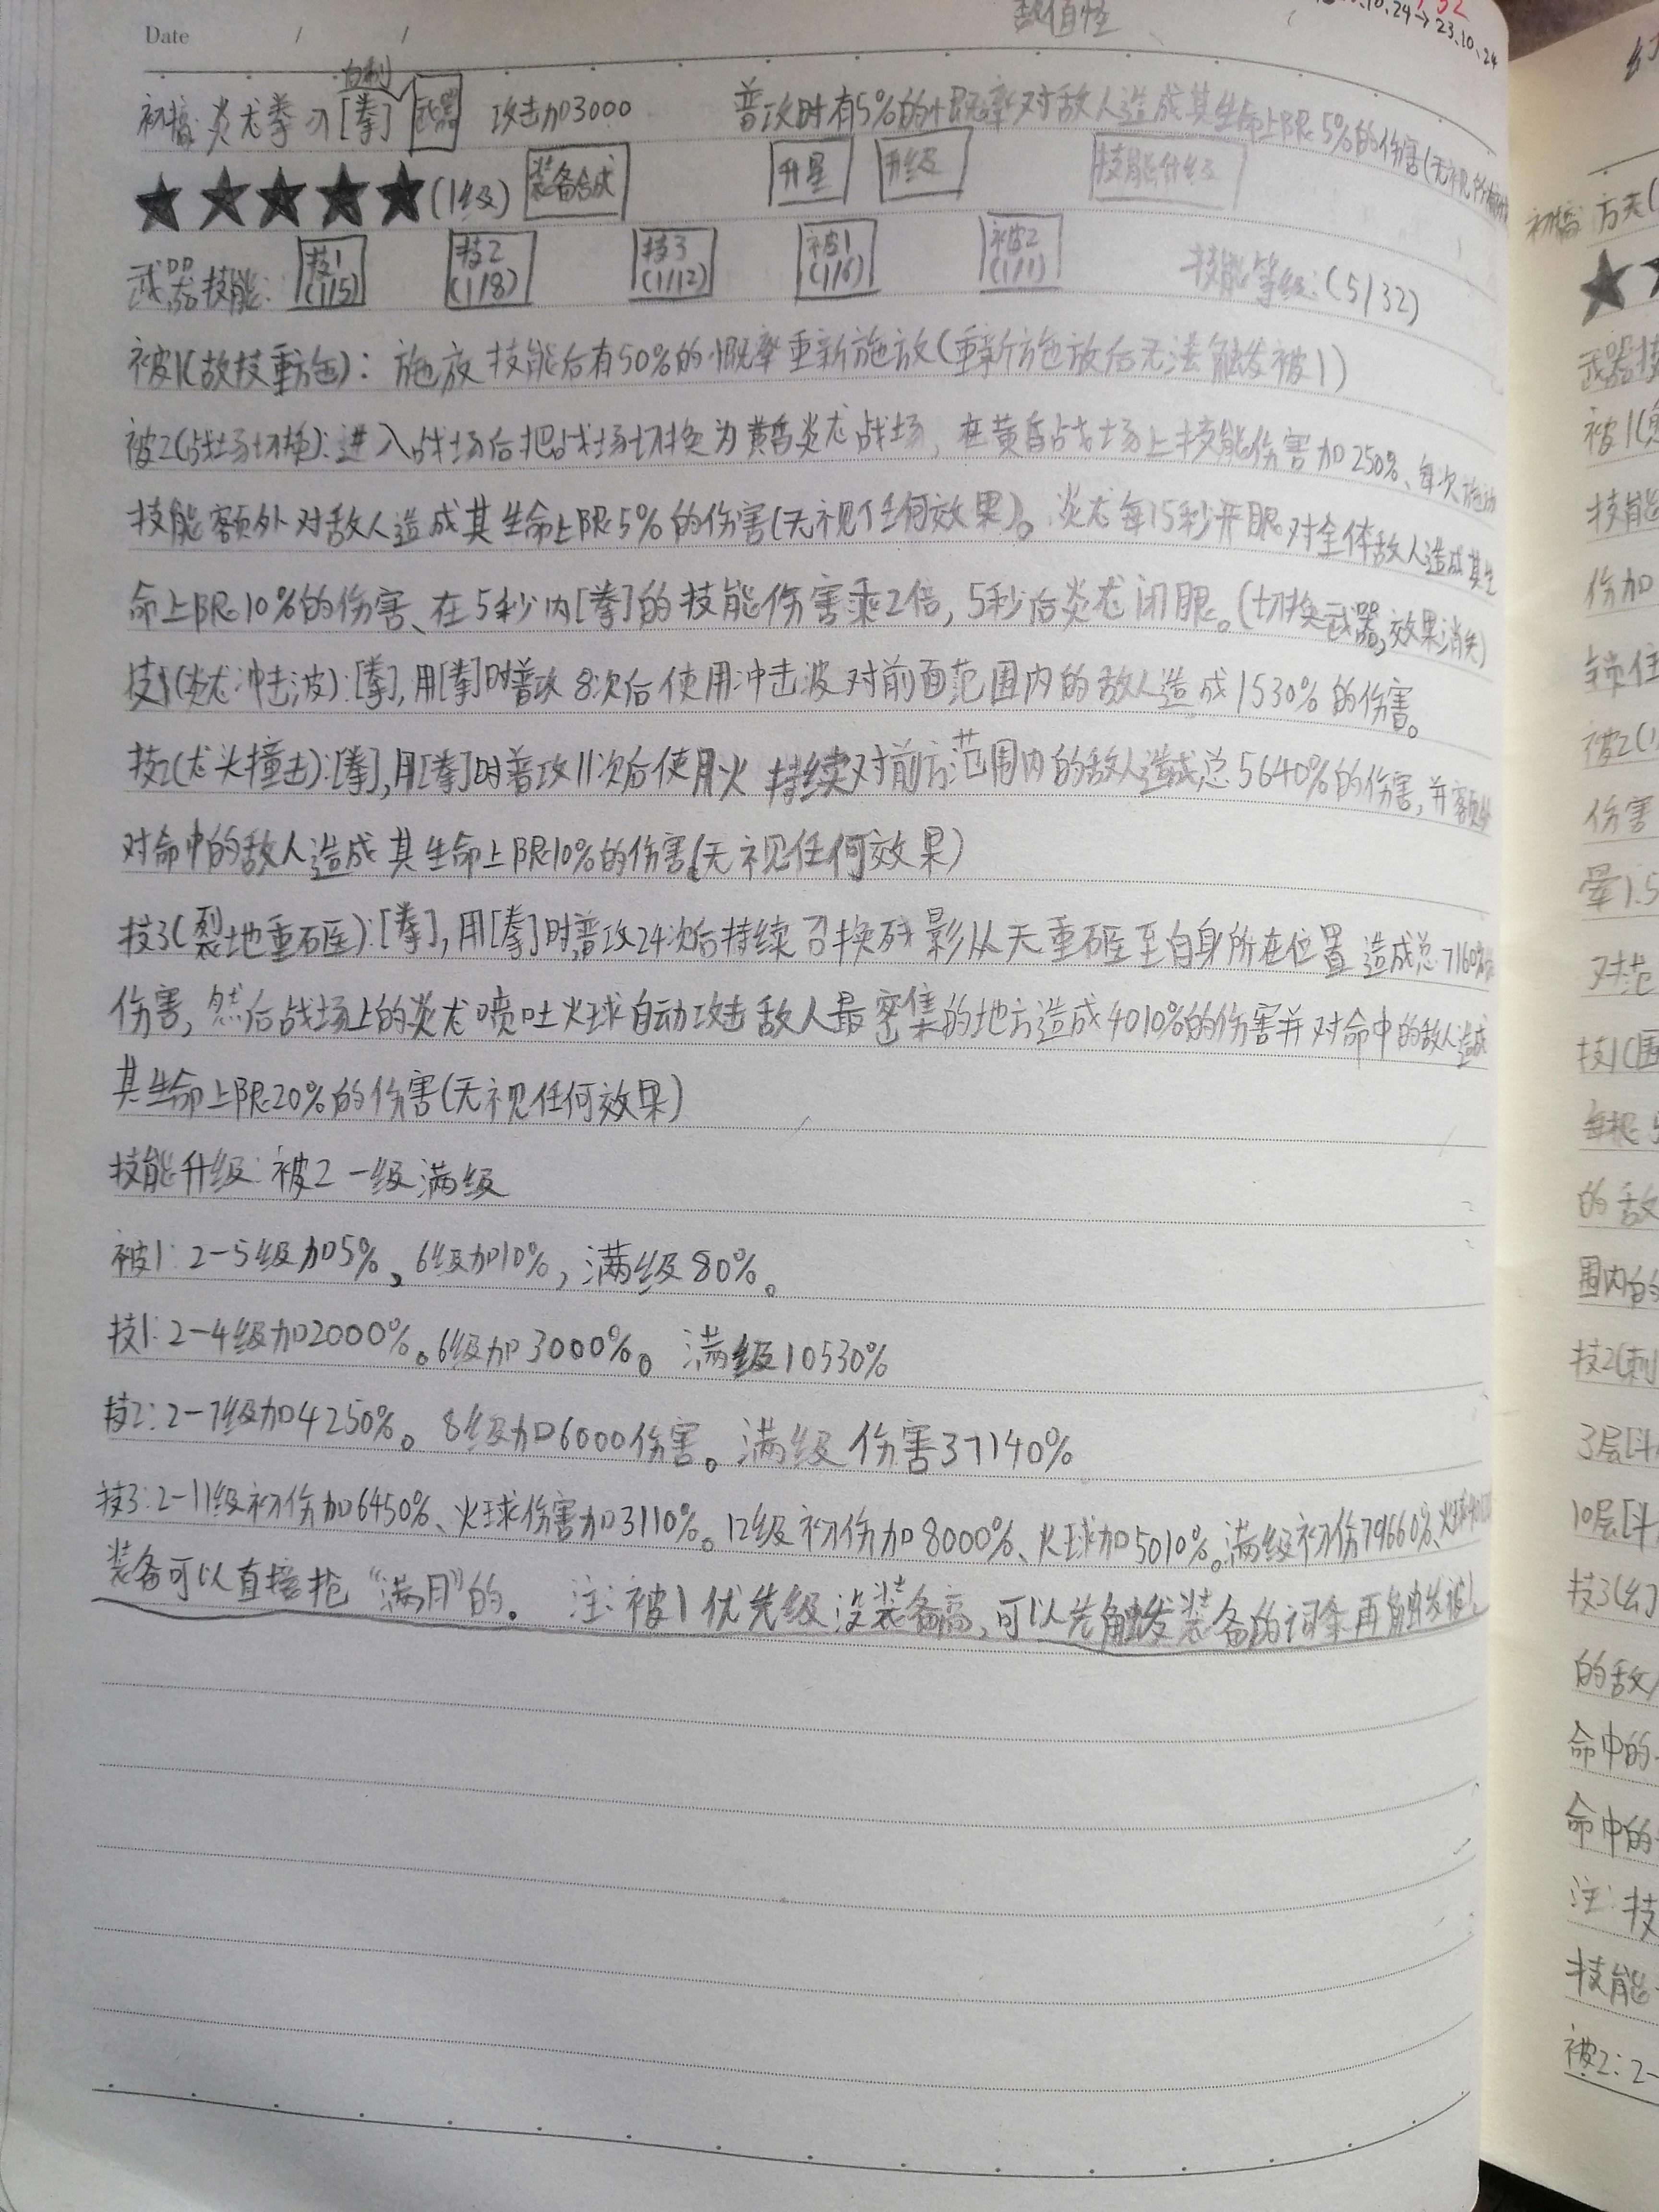 Date / /
数值性
10.24→23.10.24
初搞: 炎龙拳 刃[拳] 武器 攻击加3000 普攻时有5%的概率对敌人造成其生命上限5%的伤害(无视
★★★★★(1级) 装备合成 升星 升级 技能升级
武器技能: 技1(1/5) 技2(1/8) 技3(1/12) 被1(1/6) 被2(1/1) 技能等级:(5/32)
被1(故技重施): 施放技能后有50%的概率重新施放(重新施放后无法触发被1)
被2(战场切换): 进入战场后把战场切换为黄昏炎龙战场, 在黄昏战场上技能伤害加250%、每次施动
技能额外对敌人造成其生命上限5%的伤害(无视任何效果)。炎龙每15秒开眼对全体敌人造成其生
命上限10%的伤害、在5秒内[拳]的技能伤害乘2倍, 5秒后炎龙闭眼。(切换武器,效果消失)
技1(炎龙冲击波):[拳],用[拳]时普攻8次后使用冲击波对前面范围内的敌人造成1530%的伤害。
技2(龙头撞击):[拳],用[拳]时普攻11次后使用火 持续对前方范围内的敌人造成总5640%的伤害,并额外
对命中的敌人造成其生命上限10%的伤害(无视任何效果)
技3(裂地重砸):[拳],用[拳]时普攻24次后持续召换残影从天重砸至自身所在位置造成总7160%的
伤害, 然后战场上的炎龙喷吐火球自动攻击敌人最密集的地方造成4010%的伤害并对命中的敌人造成
其生命上限20%的伤害(无视任何效果)
技能升级: 被2 一级满级
被1: 2-5级加5%、6级加10%, 满级80%。
技1: 2-4级加2000%。6级加3000%。满级10530%
技2: 2-7级加4250%。8级加6000伤害。满级伤害37140%
技3: 2-11级初伤加6450%、火球伤害加3110%。12级初伤加8000%、火球加5010%。满级初伤79660%、火球
装备可以直接抢“满月”的。 注: 被1优先级没装备高, 可以先触发装备的词条再触发被1
初搞: 方天
武器技
被1(
技能
伤加
被2(
伤害
晕1.5
对范
技1(围
的敌
围内的
技2(刺
3层[斗
10层[斗
技3(幻
的敌
命中的
命中的
注: 技
技能
被2: 2-